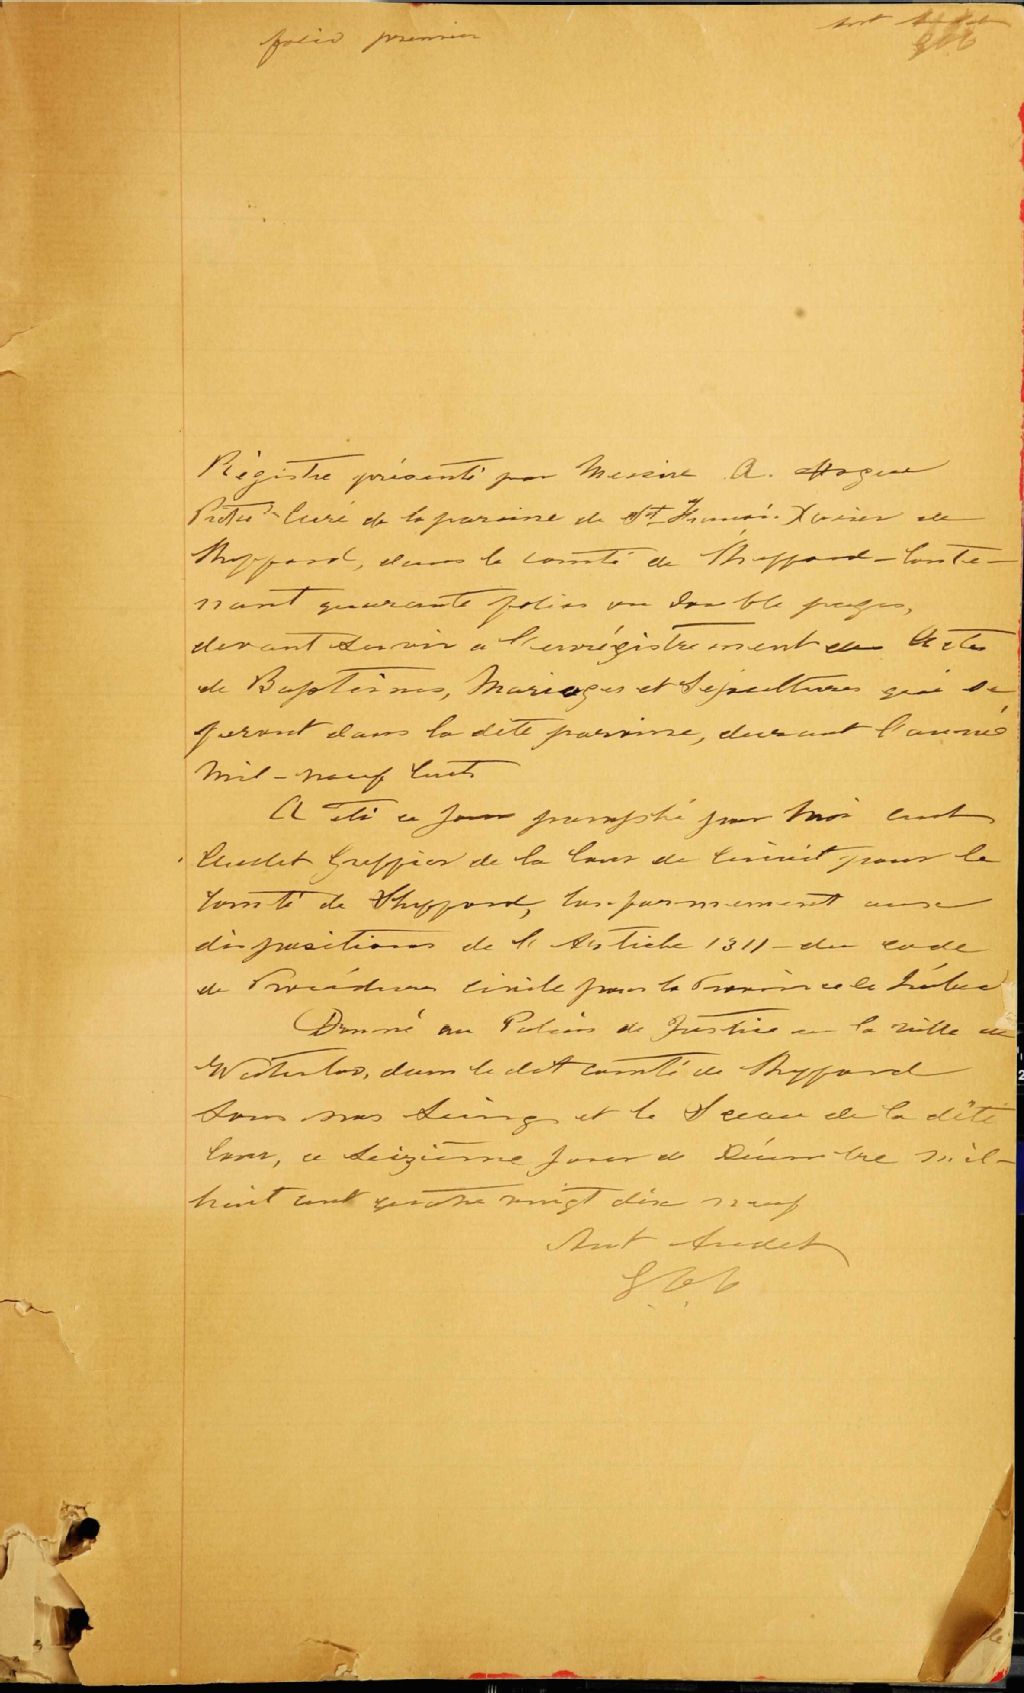 folio premier
Ant Audet
GCC
Régistre présenté par Messire A.
Prêtre Curé de la paroisse de St François Xavier de
Shefford, dans le comté de Shefford - Conte-
nant quarante folios ou double pages,
devant servir a l'enrégistrement des Actes
de Baptêmes, Mariages et Sépultures qui se
feront dans la dite paroisse, durant l'année
mil-neuf cents
A été ce jour paraphé par moi Ant
Audet Greffier de la Cour de Circuit pour le
Comté de Shefford, conformement aux
dispositions de l'Article 1311 - du code
de Procédures civile pour la Province de Québec
Donné au Palais de Justice en la ville de
Waterloo, dans le dit comté de Shefford
sous nos seings et le Sceau de la dite
Cour, ce seizième jour de Décembre mil-
huit cent quatre vingt dix neuf
Ant Audet
GCC